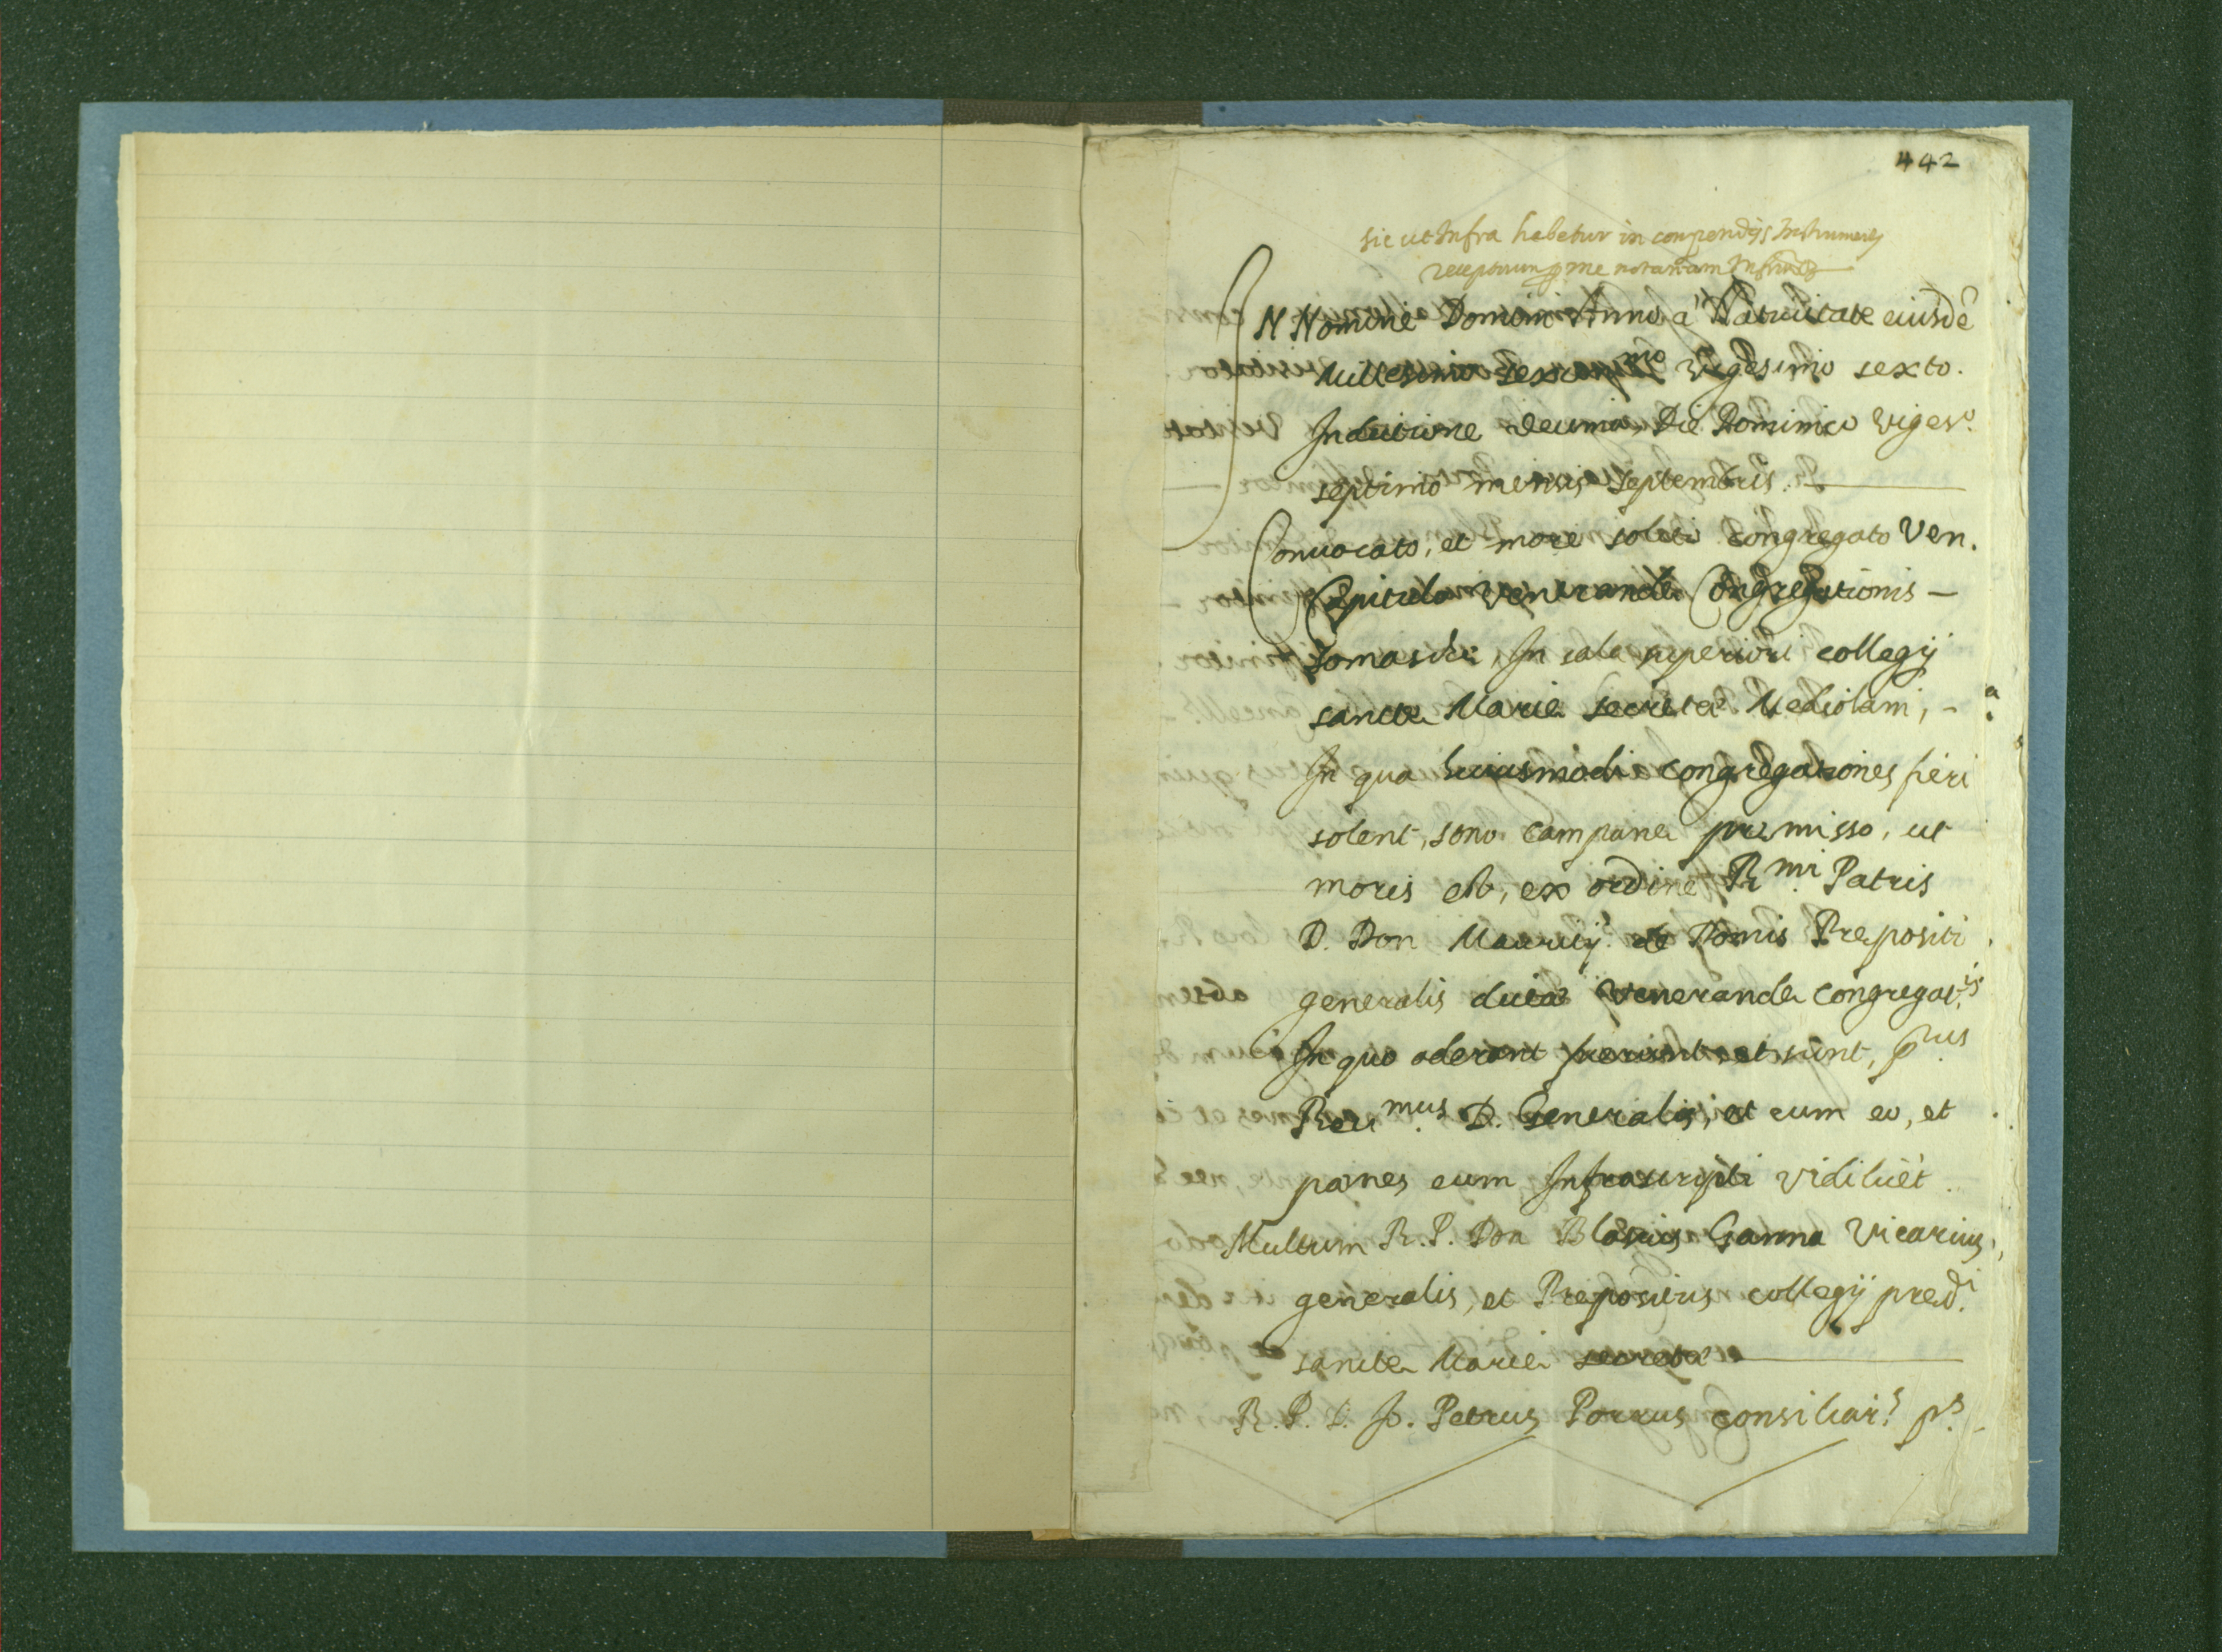 442
sic ut Infra habetur in conpendijs Instrumentis
receptorum p me notarium Infrum
IN Nomine Domini Anno à Natiuitate eiusdē
Millesimo sexcen.mo Vigesimo sexto.
Inditione decima, Die Dominico Viges.o
septimo mensis Septembris.
Conuocato, et more solito congregato Ven.
Capitulo Venerandæ Congregationis -
Somaschæ, In sala superiori collegij
sanctæ Mariæ secretæ Mediolani, -
In qua huiusmodi congregationes fieri
solent, sono Campanæ premisso, ut
moris est, ex ordine R.mi Patris
D. Don Mauritij de Domis Prepositi
generalis dictæ Venerandæ Congregat.is
In quo aderant fuerunt, et sunt, p.us
Reu.mus D. Generalis, et cum eo, et
penes eum Infrascripti Vidilicèt
Multum R. P. Don Blasius Ganna Vicarius
generalis, et Prepositus collegij pred.i
sanctæ Mariæ secretæ
R. P. D. Jo. Petrus Porrus consiliar.s p.s